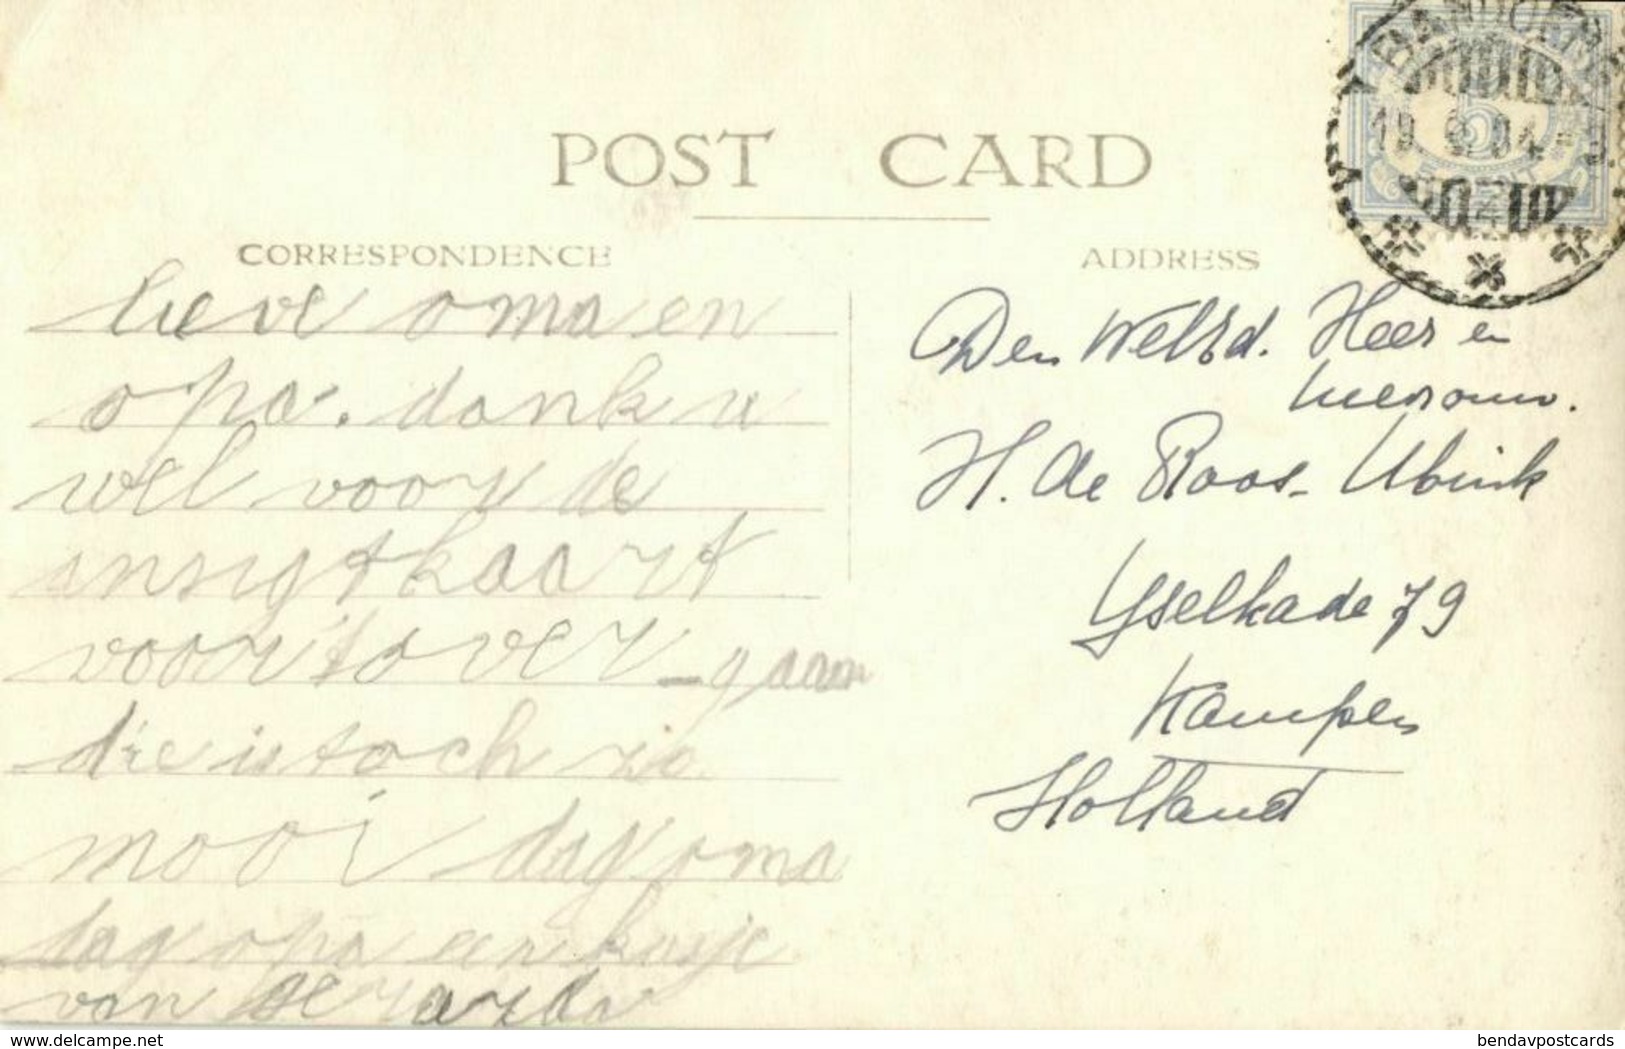 POST CARD
CORRESPONDENCE
lieve oma en
opa. dank u
wel voor de
ansigtkaart
voor'tover-gaan
die is toch zo
mooi dag oma
dag opa een kusje
van Gerarda
ADDRESS
Den Heer en
mevrouw.
H. de Roos-Ubink
Yselkade 79
Kampen
Holland
BANDOENG
delcampe.net
bendavpostcards